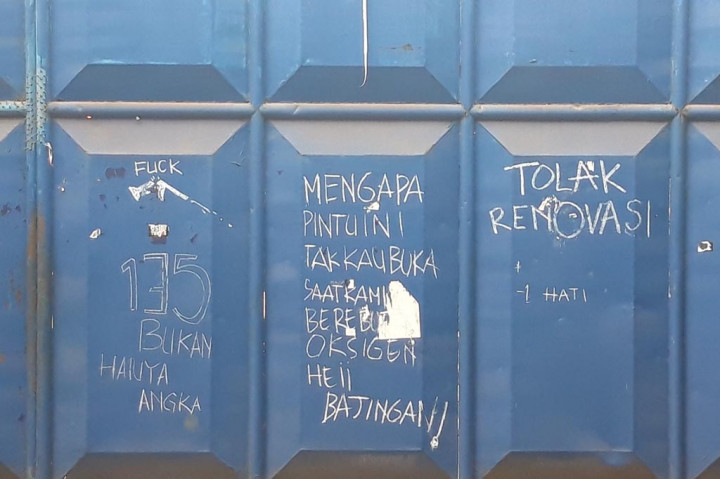 FUCK
135
BUKAN
HAIUYA
ANGKA
MENGAPA
PINTU INI
TAK KAU BUKA
SAAT KAMI
BEREBUT
OKSIGEN
HEII
BAJINGAN!
TOLAK
RENOVASI
-1 HATI